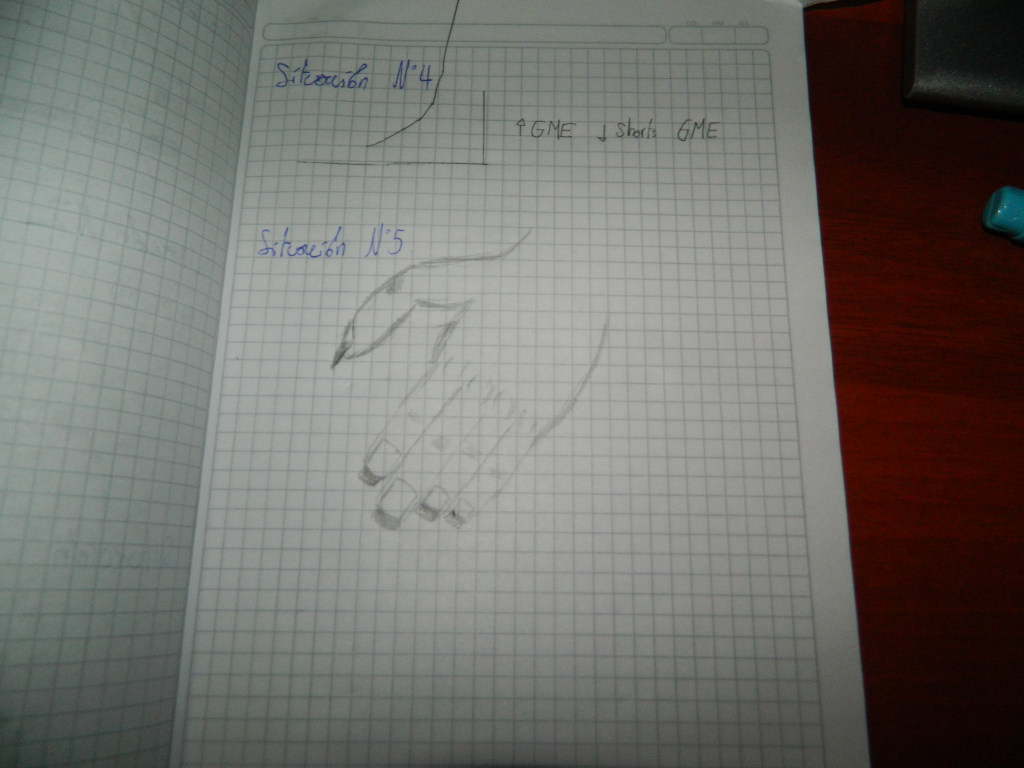 Situación N°4
↑ GME ↓ Shorts GME
Situación N°5